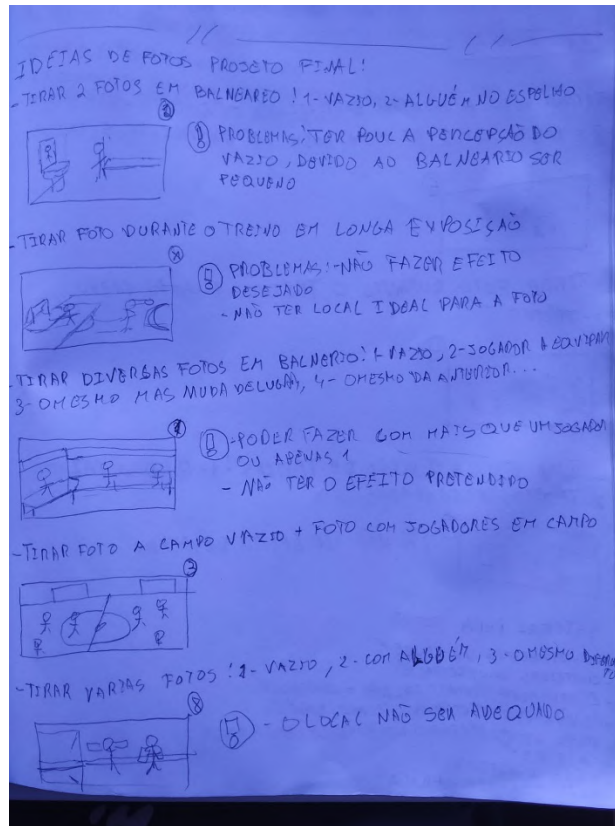 IDEIAS DE FOTOS PROJETO FINAL!
- TIRAR 2 FOTOS EM BALNEAREO! 1- VAZIO, 2- ALGUÉM NO ESPELHO
PROBLEMAS: TER POUCA PERCEPÇÃO DO
VAZIO, DEVIDO AO BALNEARIO SER
PEQUENO
- TIRAR FOTO DURANTE O TREINO EM LONGA EXPOSIÇÃO
PROBLEMAS: - NÃO FAZER EFEITO
DESEJADO
- NÃO TER LOCAL IDEAL PARA A FOTO
- TIRAR DIVERSAS FOTOS EM BALNERIO: 1- VAZIO, 2- JOGADOR A EQUIPAR
3- O MESMO MAS MUDA DE LUGAR, 4- O MESMO DA ANTERIOR...
- PODER FAZER COM MAIS QUE UM JOGADOR
OU APENAS 1
- NÃO TER O EFEITO PRETENDIDO
- TIRAR FOTO A CAMPO VAZIO + FOTO COM JOGADORES EM CAMPO
3
- TIRAR VARIAS FOTOS: 1- VAZIO, 2- COM ALGUÉM, 3- O MESMO
- O LOCAL NÃO SER ADEQUADO